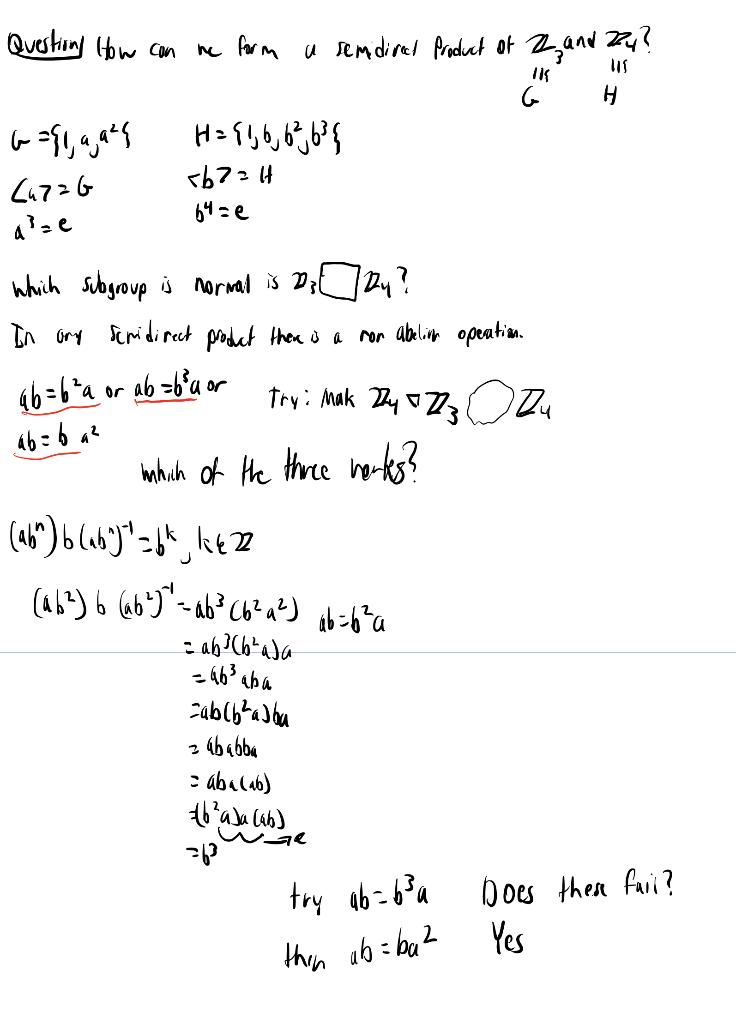 Question/ How can we form a semidirect product of ℤ₃ and ℤ₄?
≅ ≅
G H
G = {1, a, a²} H = {1, b, b², b³}
<a> = G <b> = H
a³ = e b⁴ = e
which subgroup is normal is ℤ₃ □ ℤ₄?
In any semidirect product there is a non abelian operation.
ab = b²a or ab = b³a or Try: Mak ℤ₄ ⊲ ℤ₃ ◯ ℤ₄
ab = b a²
which of the three works?
(abⁿ) b (abⁿ)⁻¹ = bᵏ, k ∈ ℤ
(ab²) b (ab²)⁻¹ = ab³ (b²a²) ab = b²a
= ab³(b²a)a
= ab³ aba
= ab(b²a)ba
= ababba
= aba(ab)
= (b²a)a(ab) → e
= b³
try ab = b³a Does these fail?
then ab = ba² Yes